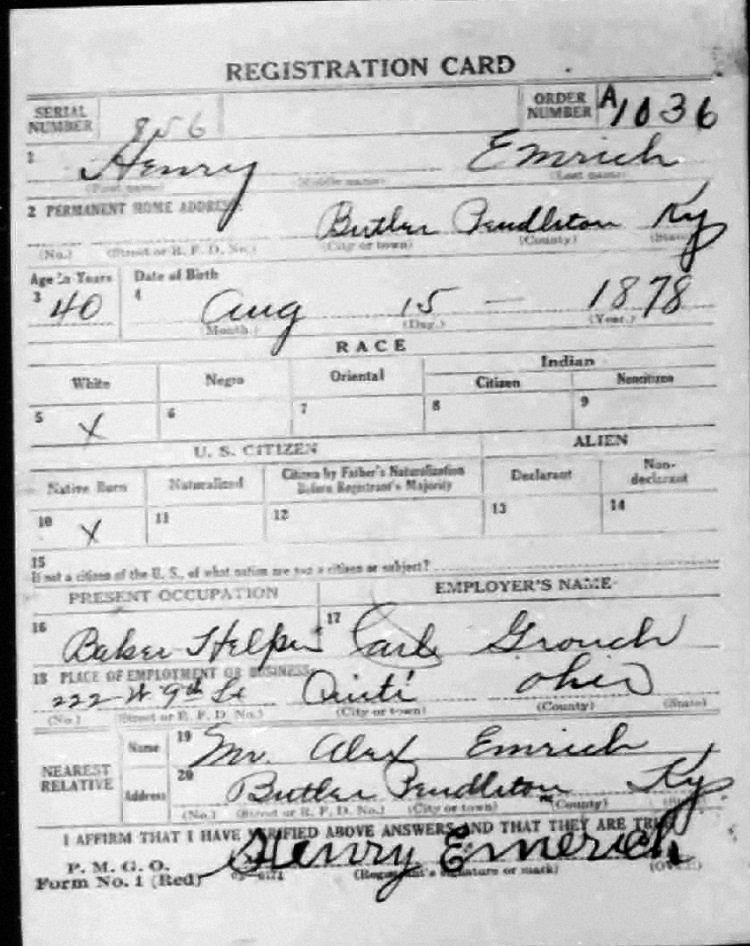 REGISTRATION CARD
SERIAL NUMBER 856 ORDER NUMBER A 1036
1 Henry Emrich
(First name) (Middle name) (Last name)
2 PERMANENT HOME ADDRESS:
Butler Pendleton Ky
(No.) (Street or R. F. D. No.) (City or town) (County) (State)
Age in Years Date of Birth
3 40 4 Aug 15 – 1878
(Month.) (Day.) (Year.)
RACE
White Negro Oriental Indian
Citizen Noncitizen
5 X 6 7 8 9
U. S. CITIZEN ALIEN
Native Born Naturalized Citizen by Father's Naturalization Before Registrant's Majority Declarant Non-declarant
10 X 11 12 13 14
15
If not a citizen of the U. S., of what nation are you a citizen or subject?
PRESENT OCCUPATION EMPLOYER'S NAME
16 Baker Helper 17 Carl Grouch
18 PLACE OF EMPLOYMENT OR BUSINESS:
222 W 9th Cinti Ohio
(No.) (Street or R. F. D. No.) (City or town) (County) (State)
NEAREST RELATIVE
Name 19 Mr. Alex Emrich
Address 20 Butler Pendleton Ky
(No.) (Street or R. F. D. No.) (City or town) (County)
I AFFIRM THAT I HAVE VERIFIED ABOVE ANSWERS AND THAT THEY ARE TRUE
P. M. G. O.
Form No. 1 (Red) Henry Emerich
(Registrant's signature or mark) (OVER)